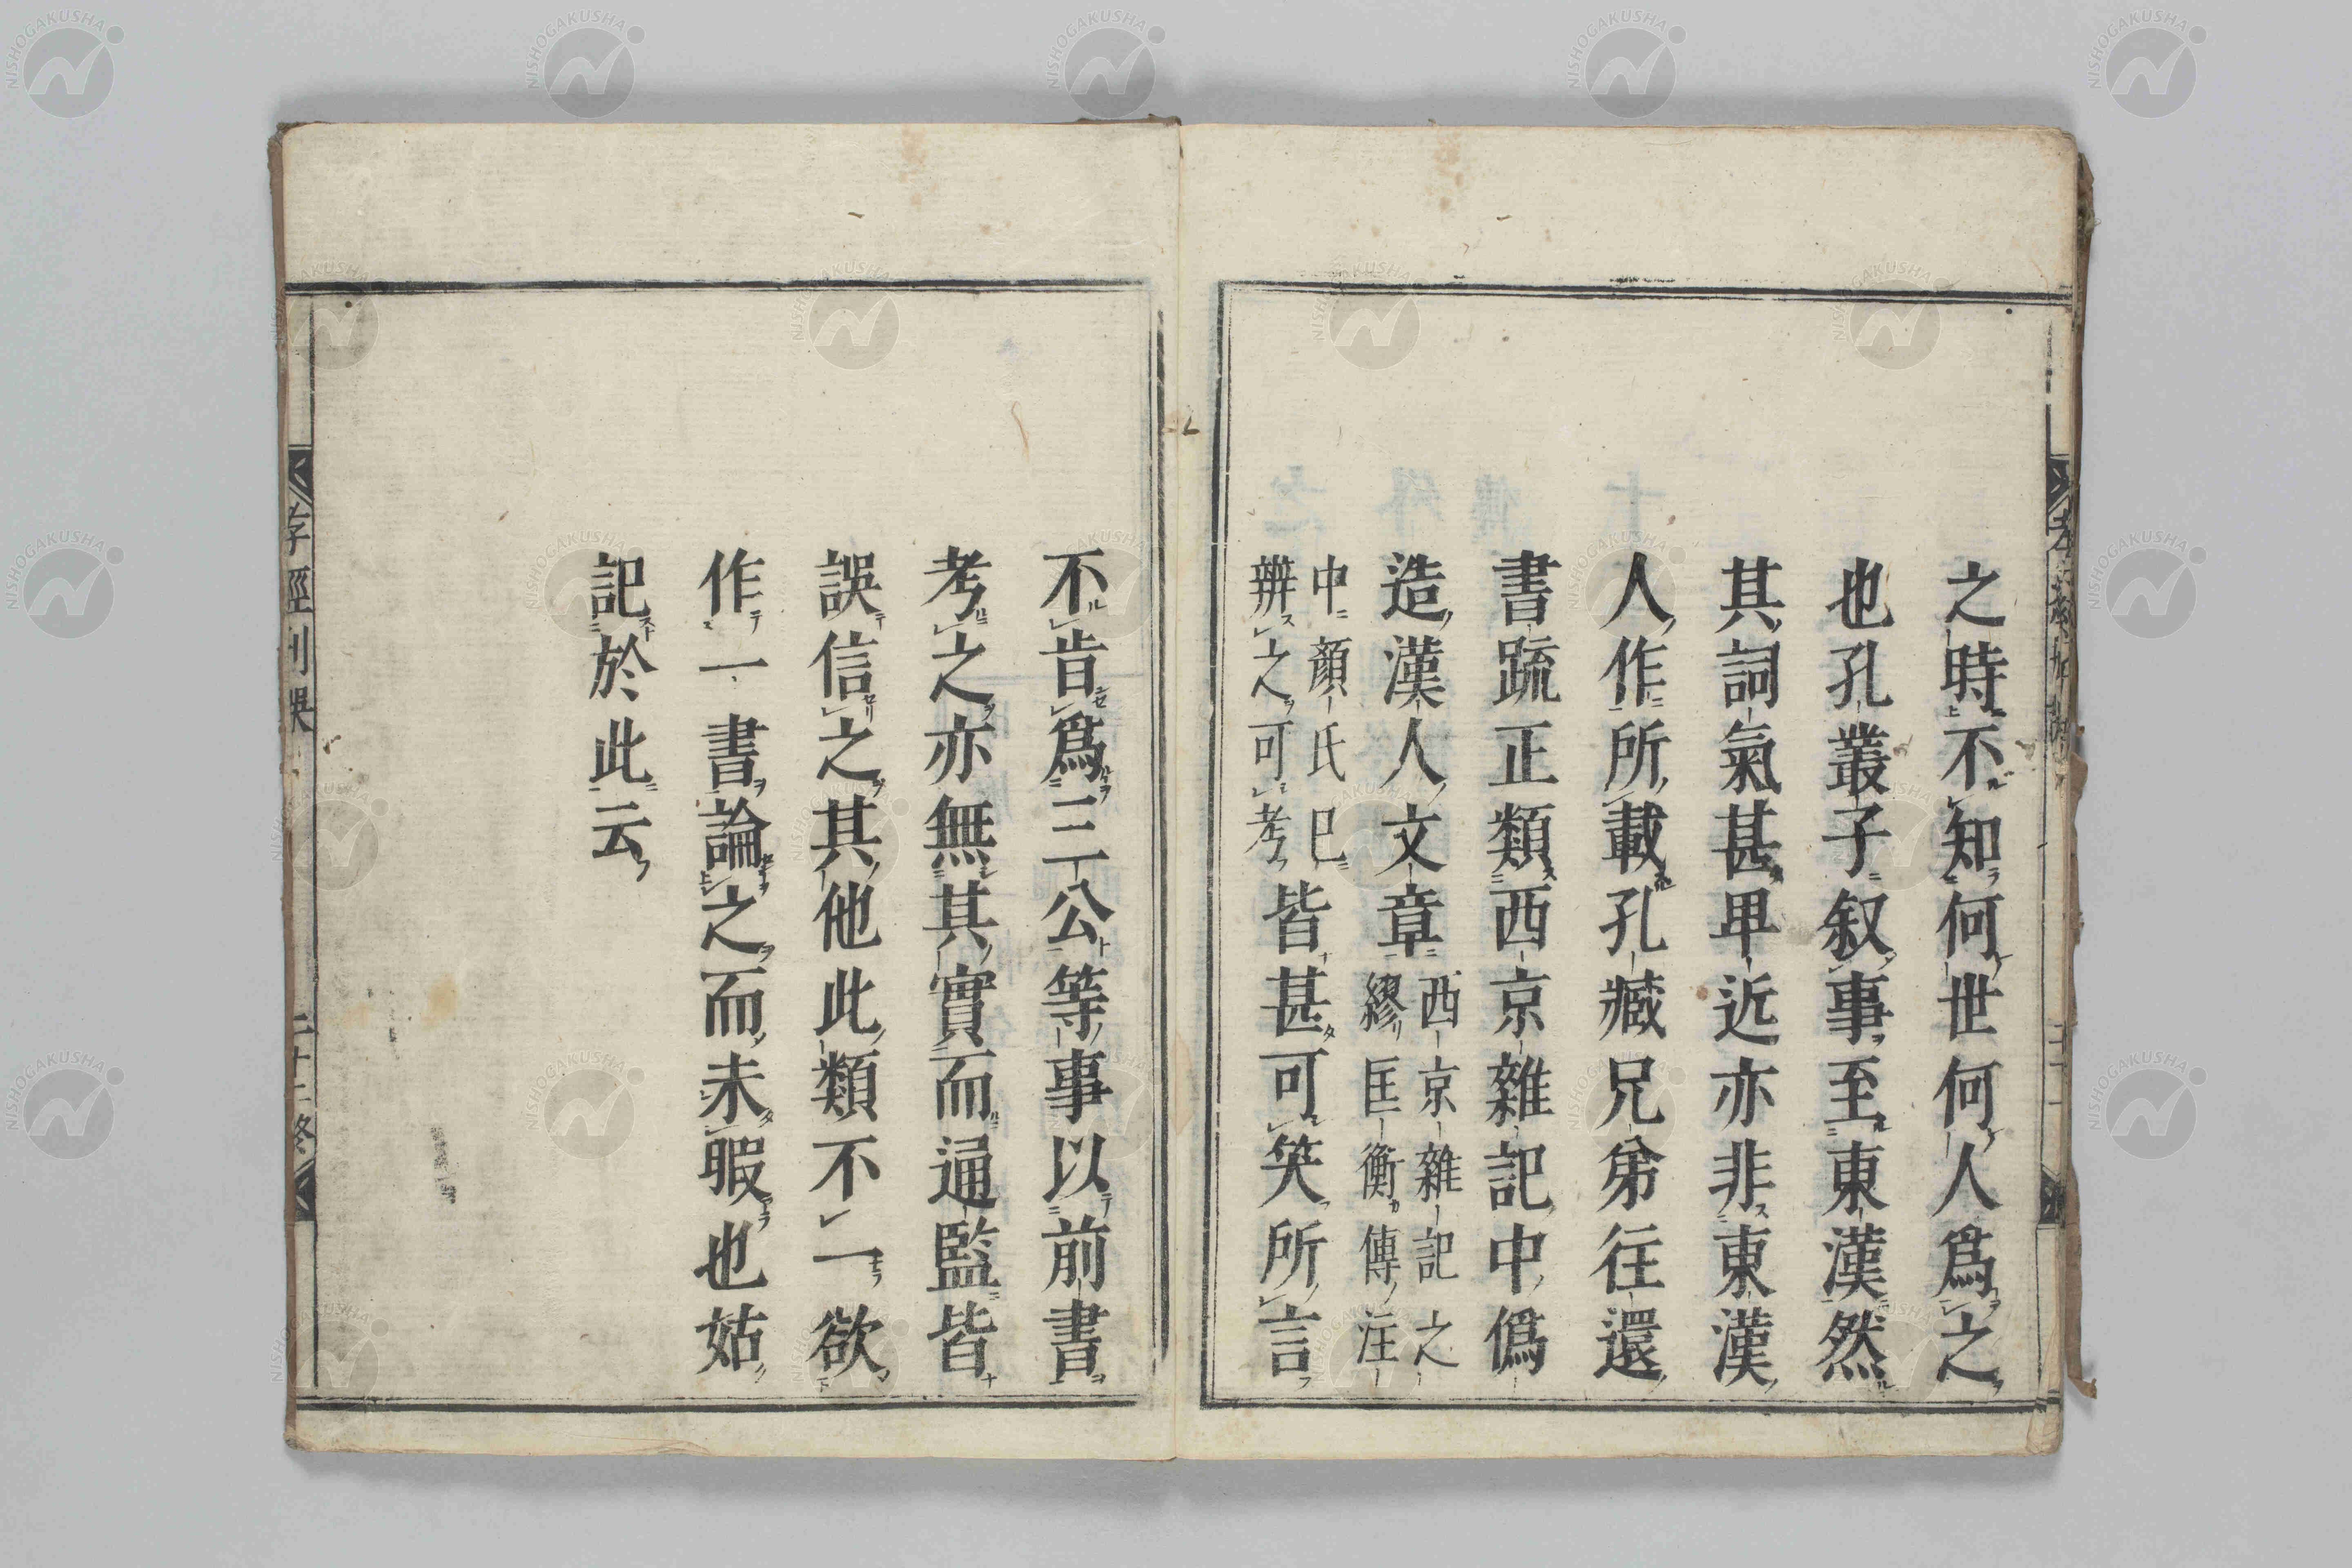 之時不知何世何人爲之
也孔叢子叙事至東漢然
其詞氣甚卑近亦非東漢
人作所載孔臧兄弟往還
書疏正類西京雜記中僞
造漢人文章西京雜記之
繆匡衡傳注
中顏氏已
辨之可考皆甚可笑所言
不肯爲三公等事以前書
考之亦無其實而通監皆
誤信之其他此類不一欲
作一書論之而未暇也姑
記於此云
孝經刊誤
二十二終
NISHOGAKUSHA